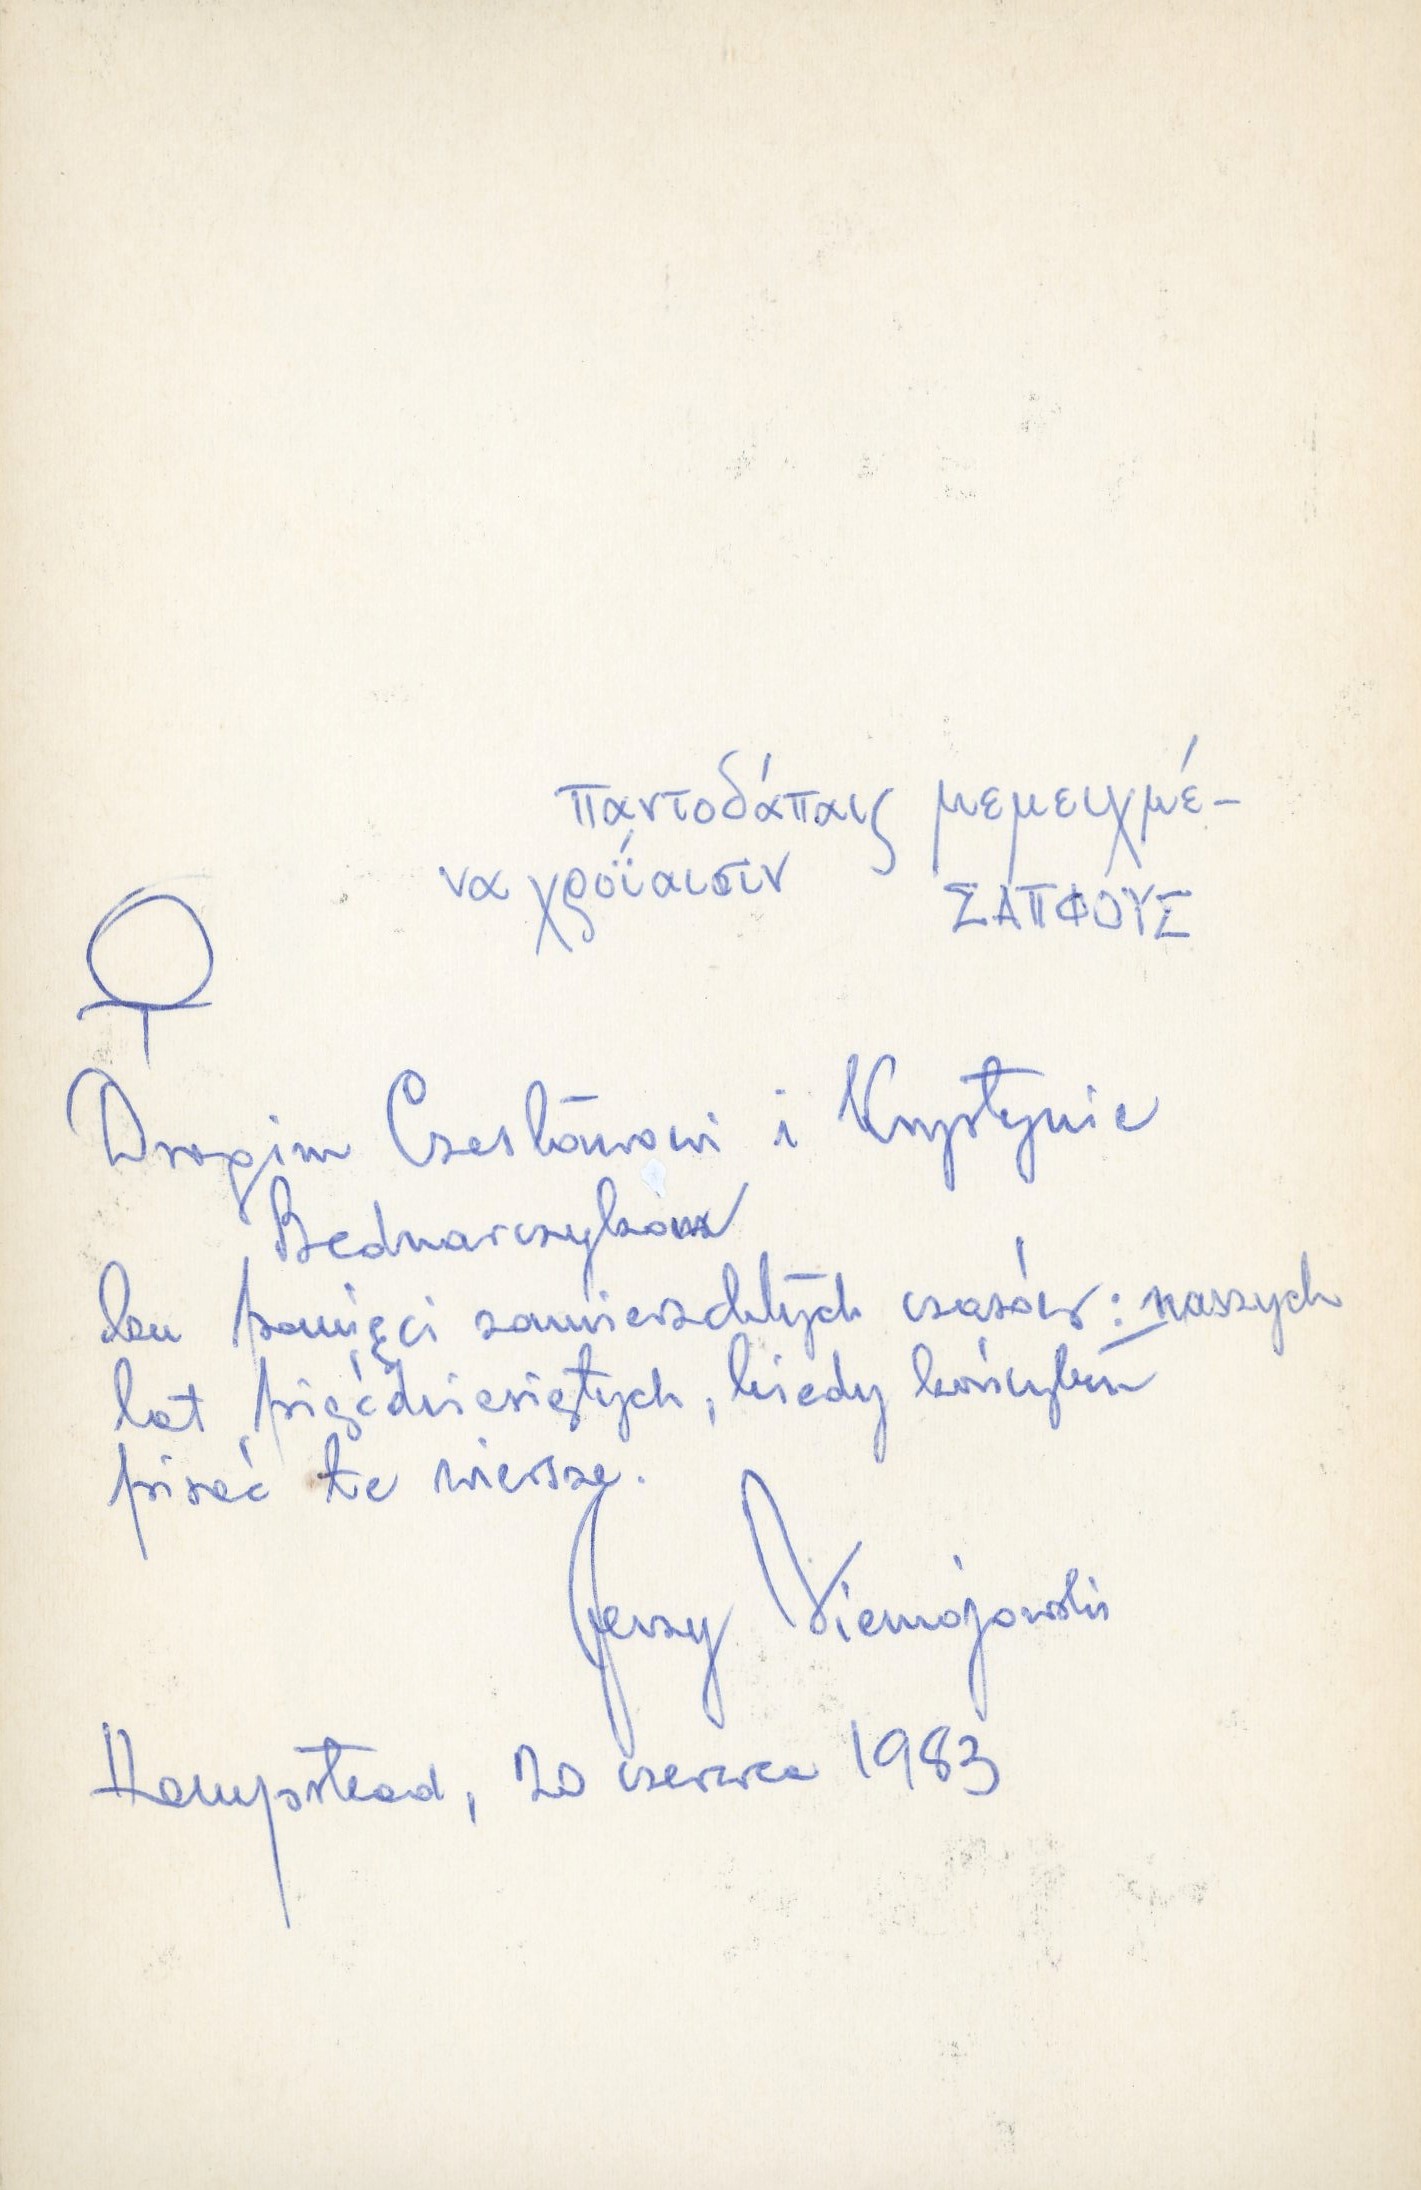 παντοδάπαις μεμειχμέ-
να χροΐαισιν ΣΑΠΦΟΥΣ
Drogim Czesławowi i Krystynie
Bednarczykom
ku pamięci zamierzchłych czasów: naszych
lat pięćdziesiętych, kiedy kończyłem
pisać te wiersze.
Jerzy Niemojowski
Hampstead, 20 czerwca 1983